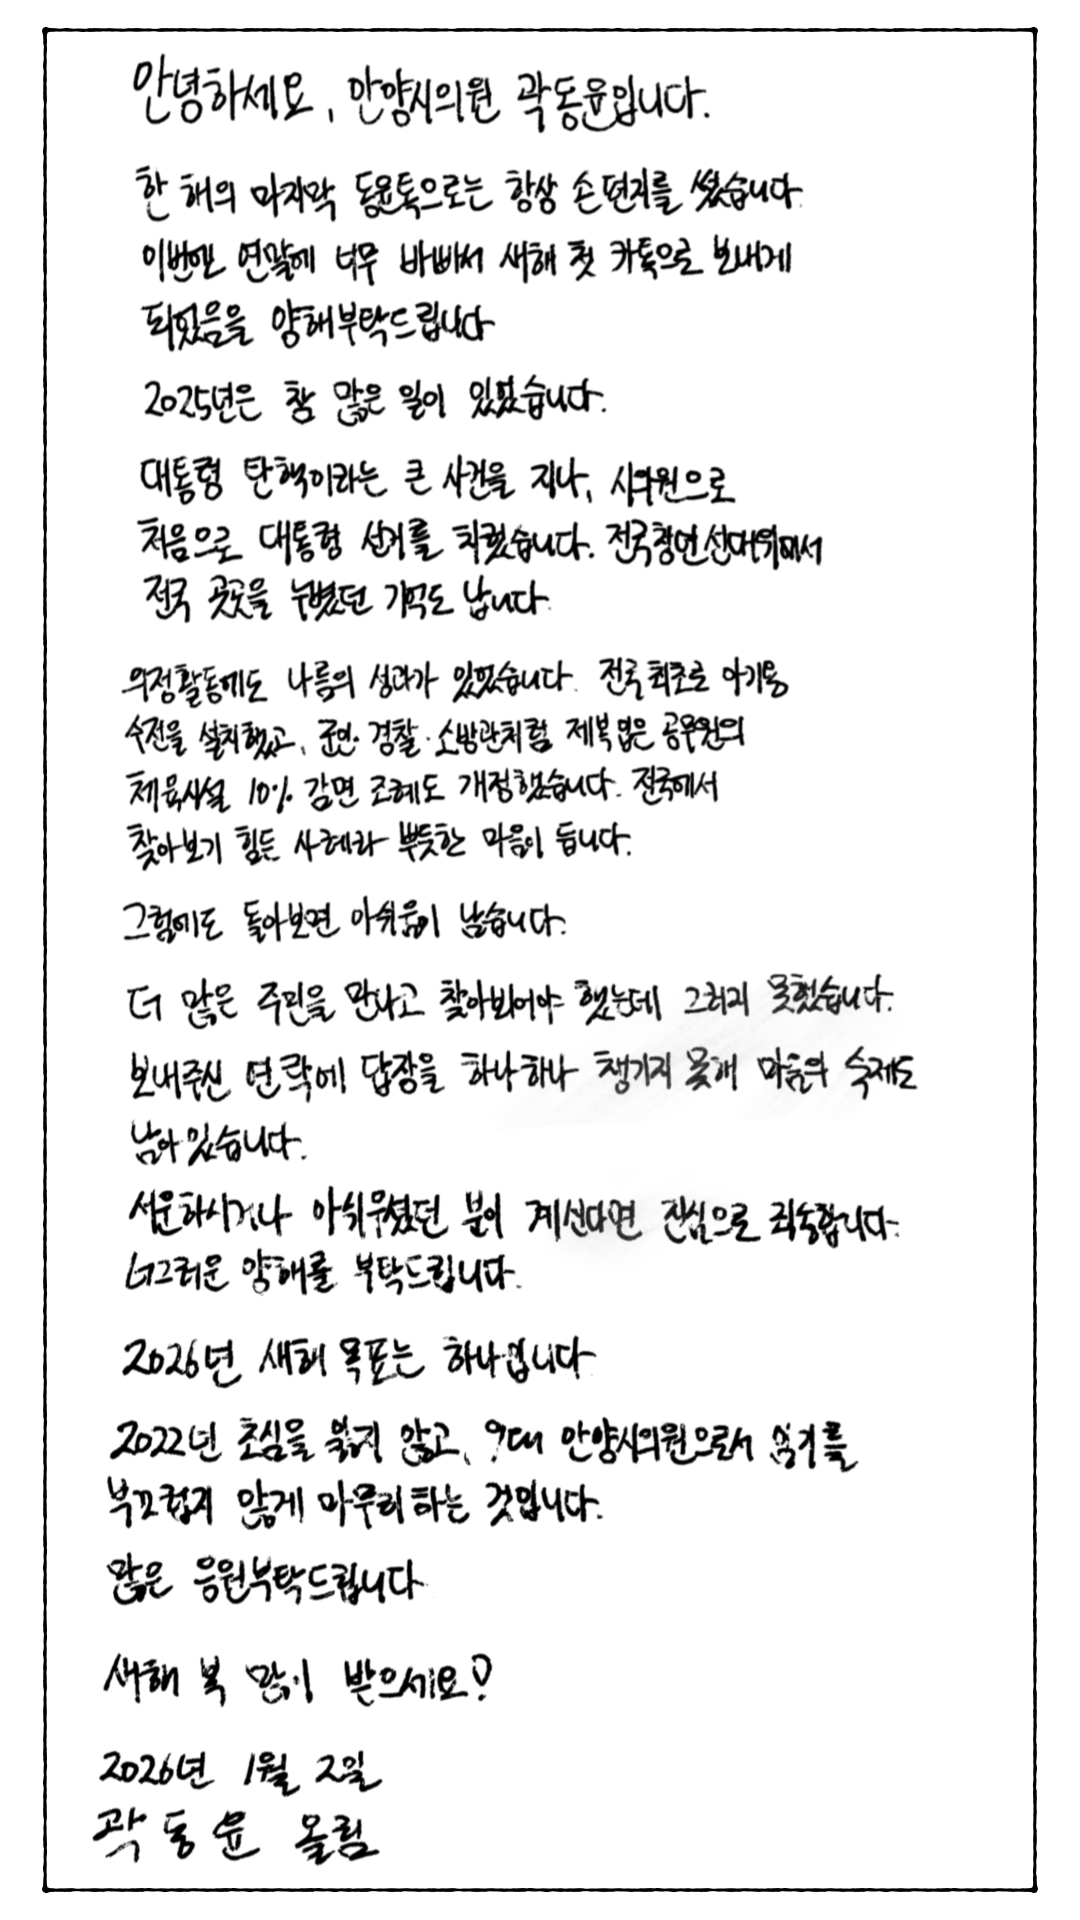 안녕하세요, 안양시의원 곽동윤입니다.
한 해의 마지막 동윤톡으로는 항상 손편지를 썼습니다.
이번엔 연말에 너무 바빠서 새해 첫 카톡으로 보내게
되었음을 양해부탁드립니다
2025년은 참 많은 일이 있었습니다.
대통령 탄핵이라는 큰 사건을 지나, 시의원으로
처음으로 대통령 선거를 치렀습니다. 전국청년선대위에서
전국 곳곳을 누볐던 기억도 납니다.
의정활동에도 나름의 성과가 있었습니다. 전국 최초로 아기용
수전을 설치했고, 군인·경찰·소방관처럼 제복입은 공무원의
체육시설 10% 감면 조례도 개정했습니다. 전국에서
찾아보기 힘든 사례라 뿌듯한 마음이 듭니다.
그럼에도 돌아보면 아쉬움이 남습니다.
더 많은 주민을 만나고 찾아뵈어야 했는데 그러지 못했습니다.
보내주신 연락에 답장을 하나하나 챙기지 못해 마음의 숙제도
남아있습니다.
서운하시거나 아쉬우셨던 분이 계신다면 진심으로 죄송합니다.
너그러운 양해를 부탁드립니다.
2026년 새해 목표는 하나입니다
2022년 초심을 잃지 않고, 9대 안양시의원으로서 임기를
부끄럽지 않게 마무리하는 것입니다.
많은 응원부탁드립니다
새해 복 많이 받으세요!
2026년 1월 2일
곽동윤 올림